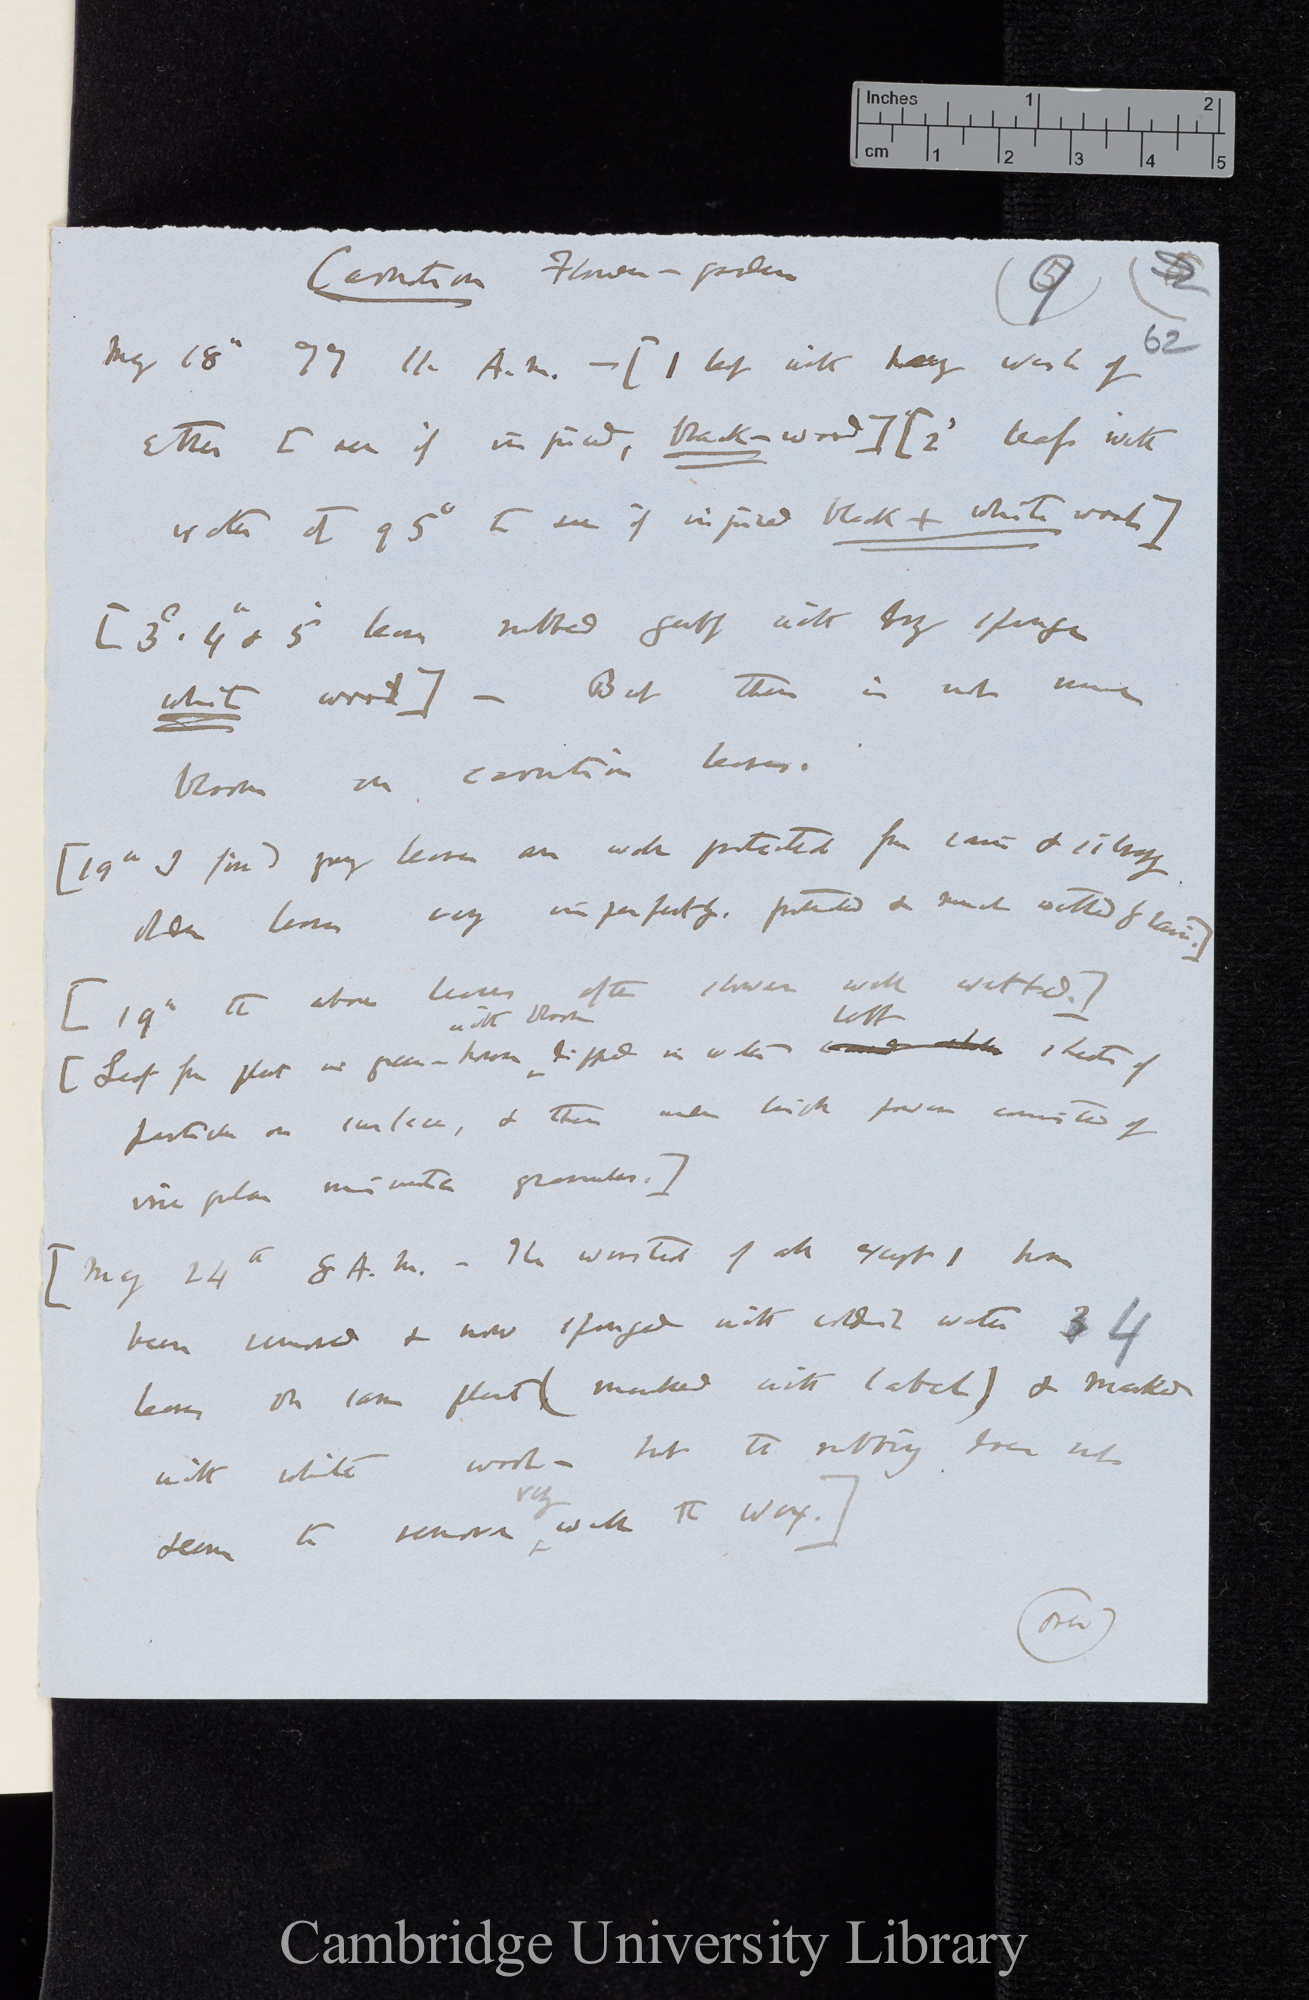 Inches 1 2
cm 1 2 3 4 5
Carnation Flower-garden
(9) 62
May 18th 77 11 A.M. — [1 leaf with heavy wash of
ether to see if injured, black-wool] [2d leaf with
water at 95° to see if injured black + white wool]
[3d. 4th & 5th leaves rubbed gently with dry sponge
white wool] — But there is not much
bloom on carnation leaves.
[19th leaves are well protected from rain &
older leaves very imperfectly protected & much wetted by rain.]
[19th the above leaves after shower well wetted.]
with bloom left
[Leaf from plant in green-house dipped in water sheets of
particles on surface, & these under high power consisted of
irregular minute granules.]
[May 24th 8 A.M. — The worsted of all except 1 have
been removed & now sponged with water 4
leaves on same plant (marked with label) & marked
with white wool — but the rubbing does not
very
seem to remove well the wax.]
(over)
Cambridge University Library